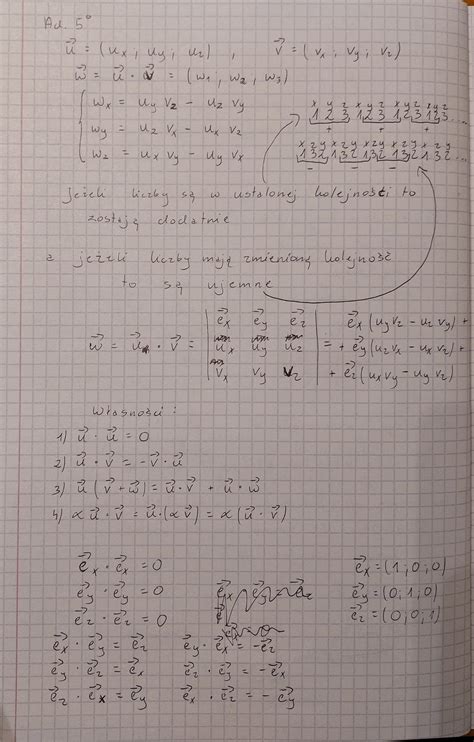 Ad. 5°
u⃗ = (ux ; uy ; uz) , v⃗ = (vx ; vy ; vz)
w⃗ = u⃗ · v⃗ = (w1 , w2 , w3)
wx = uy vz − uz vy
wy = uz vx − ux vz
wz = ux vy − uy vx
x y z x y z x y z x y z
1 2 3 1 2 3 1 2 3 1 2 3 ....
+ + +
x z y x z y x z y x z y
1 3 2 1 3 2 1 3 2 1 3 2 ....
− − −
Jeżeli liczby są w ustalonej kolejności to
zostają dodatnie
a jeżeli liczby mają zmienioną kolejność
to są ujemne
e⃗x e⃗y e⃗z e⃗x (uy vz − uz vy) +
w⃗ = u⃗ · v⃗ = ux uy uz = + e⃗y (uz vx − ux vz) +
vx vy vz + e⃗z (ux vy − uy vx)
Własności :
1) u⃗ · u⃗ = 0
2) u⃗ · v⃗ = −v⃗ · u⃗
3) u⃗ (v⃗ + w⃗) = u⃗ · v⃗ + u⃗ · w⃗
4) α u⃗ · v⃗ = u⃗ · (α v⃗) = α (u⃗ · v⃗)
e⃗x · e⃗x = 0 e⃗x = (1 ; 0 ; 0)
e⃗y · e⃗y = 0 e⃗y = (0 ; 1 ; 0)
e⃗z · e⃗z = 0 e⃗z = (0 ; 0 ; 1)
e⃗x · e⃗y = e⃗z e⃗y · e⃗x = −e⃗z
e⃗y · e⃗z = e⃗x e⃗z · e⃗y = −e⃗x
e⃗z · e⃗x = e⃗y e⃗x · e⃗z = −e⃗y